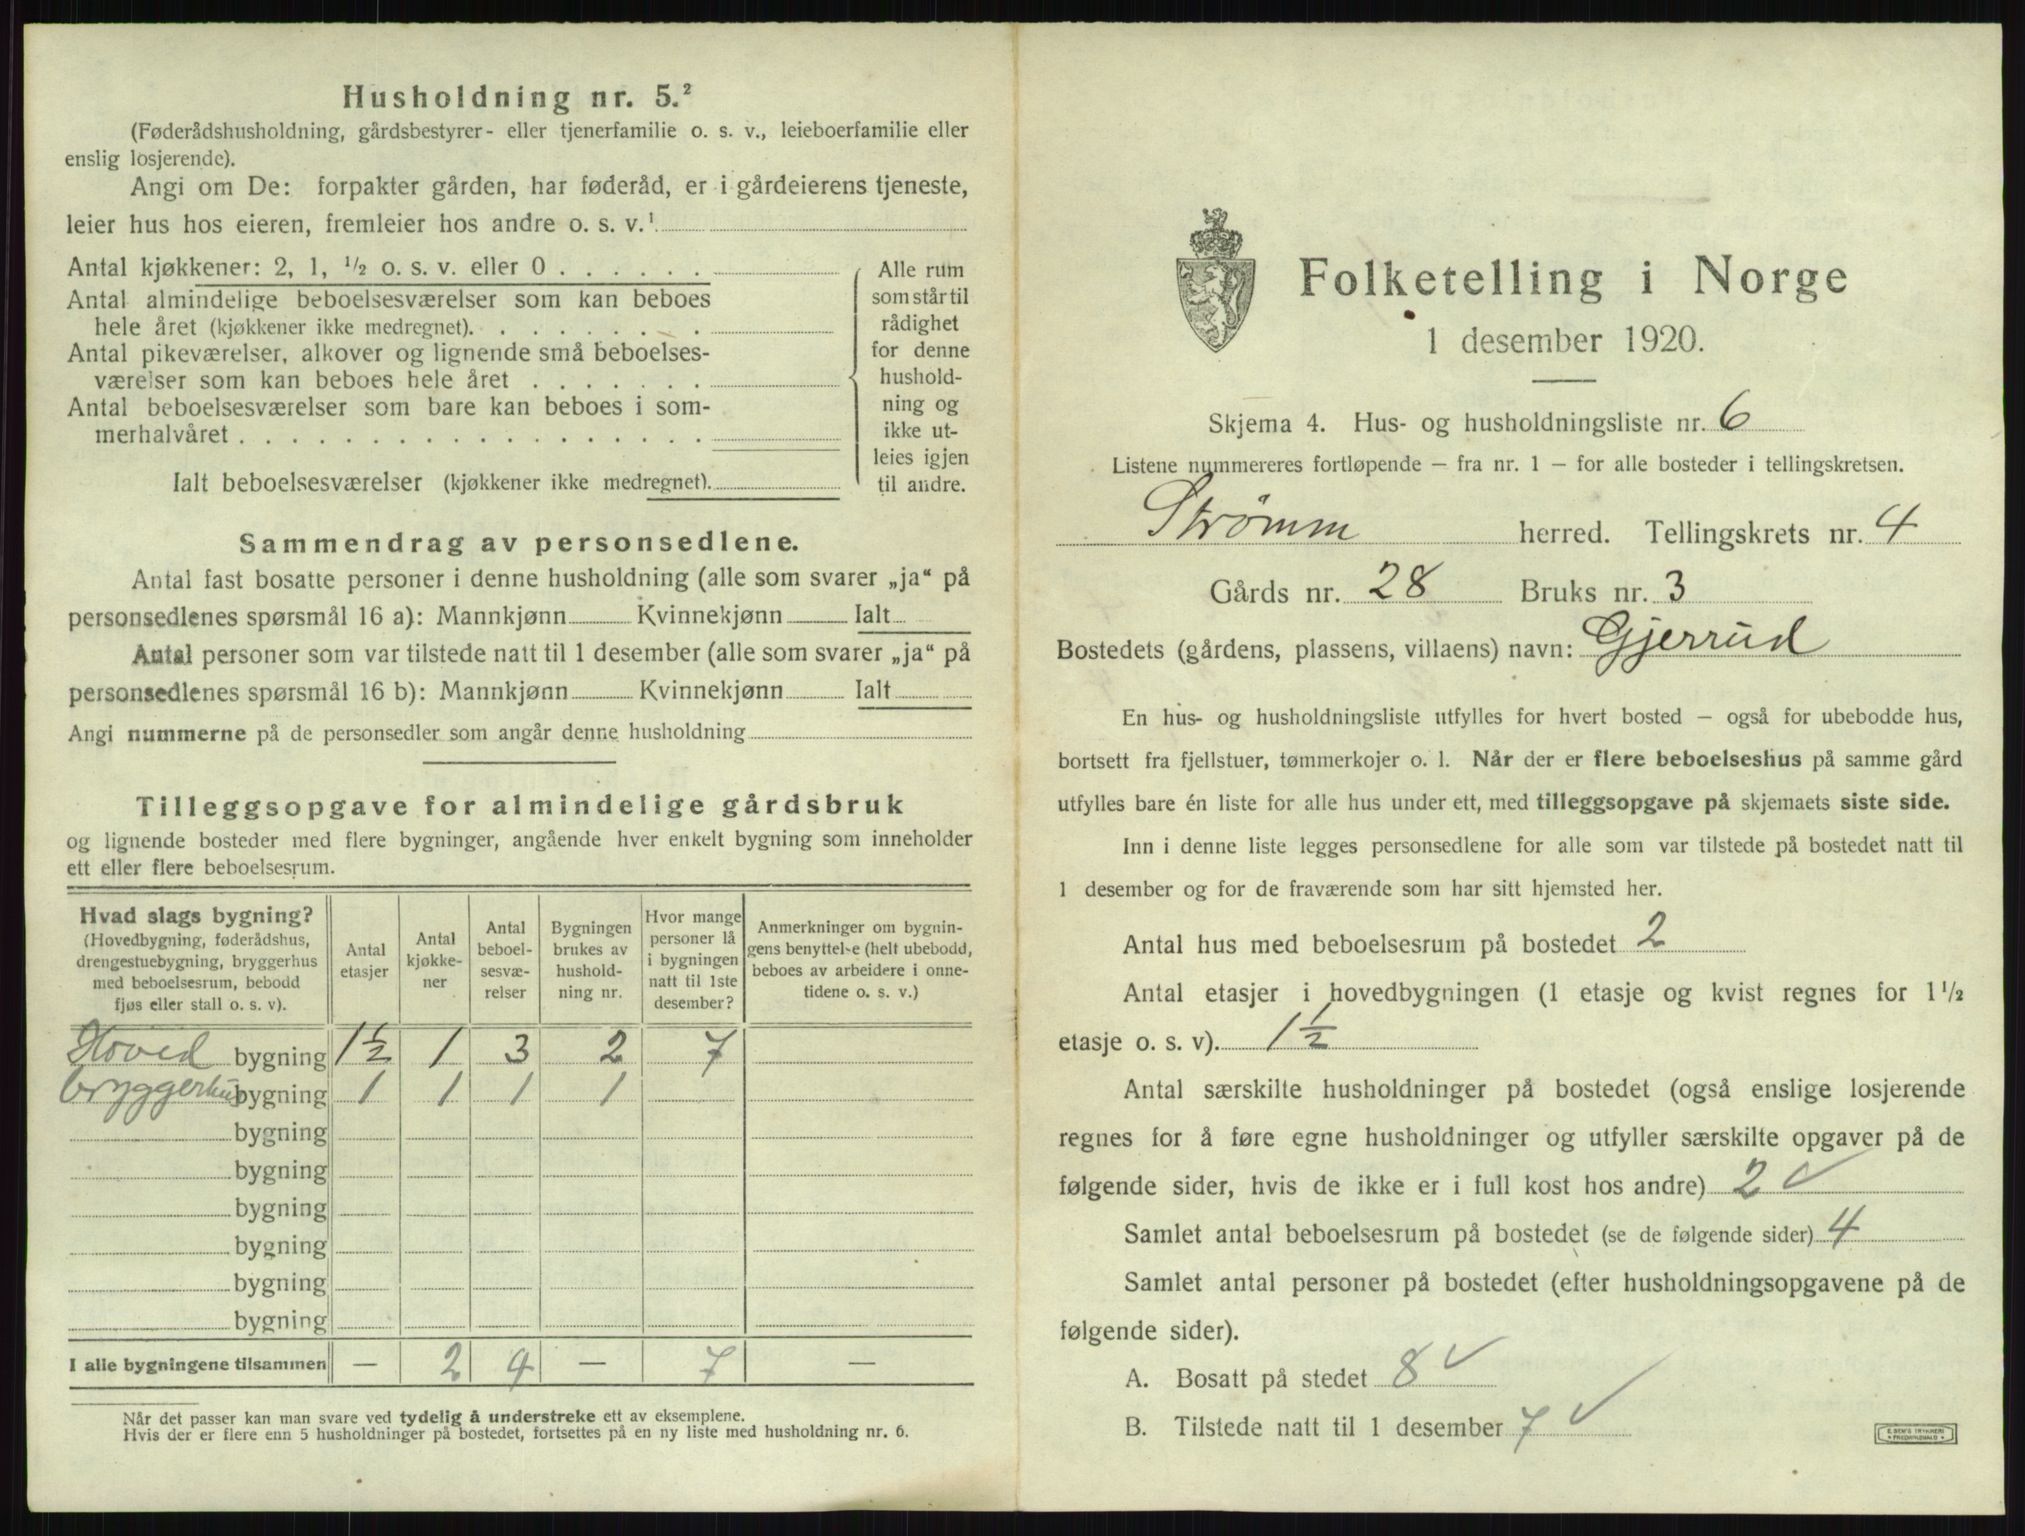 Husholdning nr. 5.²
(Føderådshusholdning, gårdsbestyrer- eller tjenerfamilie o. s. v., leieboerfamilie eller
enslig losjerende).
Angi om De: forpakter gården, har føderåd, er i gårdeierens tjeneste,
leier hus hos eieren, fremleier hos andre o. s. v.¹
Antal kjøkkener: 2, 1, ½ o. s. v. eller 0 . . . . . .
Antal almindelige beboelsesværelser som kan beboes
hele året (kjøkkener ikke medregnet). . . . . . . . .
Antal pikeværelser, alkover og lignende små beboelses-
værelser som kan beboes hele året . . . . . . .
Antal beboelsesværelser som bare kan beboes i som-
merhalvåret . . . . . . . . . . . . . . . . . .
Ialt beboelsesværelser (kjøkkener ikke medregnet).
Alle rum
som står til
rådighet
for denne
hushold-
ning og
ikke ut-
leies igjen
til andre.
Sammendrag av personsedlene.
Antal fast bosatte personer i denne husholdning (alle som svarer „ja“ på
personsedlenes spørsmål 16 a): Mannkjønn Kvinnekjønn Ialt
Antal personer som var tilstede natt til 1 desember (alle som svarer „ja“ på
personsedlenes spørsmål 16 b): Mannkjønn Kvinnekjønn Ialt
Angi nummerne på de personsedler som angår denne husholdning
Tilleggsopgave for almindelige gårdsbruk
og lignende bosteder med flere bygninger, angående hver enkelt bygning som inneholder
ett eller flere beboelsesrum.
Hvad slags bygning?
(Hovedbygning, føderådshus,
drengestuebygning, bryggerhus
med beboelsesrum, bebodd
fjøs eller stall o. s. v).
Antal
etasjer
Antal
kjøkke-
ner
Antal
beboel-
sesvæ-
relser
Bygningen
brukes av
hushold-
ning nr.
Hvor mange
personer lå
i bygningen
natt til 1ste
desember?
Anmerkninger om bygnin-
gens benyttelse (helt ubebodd,
beboes av arbeidere i onne-
tidene o. s. v.)
Hoved bygning 1½ 1 3 2 7
bryggerhus bygning 1 1 1 1
bygning
bygning
bygning
bygning
bygning
bygning
I alle bygningene tilsammen — 2 4 — 7 —
Når det passer kan man svare ved tydelig å understreke ett av eksemplene.
Hvis der er flere enn 5 husholdninger på bostedet, fortsettes på en ny liste med husholdning nr. 6.
Folketelling i Norge
1 desember 1920.
Skjema 4. Hus- og husholdningsliste nr. 6
Listene nummereres fortløpende — fra nr. 1 — for alle bosteder i tellingskretsen.
Strømm herred. Tellingskrets nr. 4
Gårds nr. 28 Bruks nr. 3
Bostedets (gårdens, plassens, villaens) navn: Gjerrud
En hus- og husholdningsliste utfylles for hvert bosted — også for ubebodde hus,
bortsett fra fjellstuer, tømmerkojer o. l. Når der er flere beboelseshus på samme gård
utfylles bare én liste for alle hus under ett, med tilleggsopgave på skjemaets siste side.
Inn i denne liste legges personsedlene for alle som var tilstede på bostedet natt til
1 desember og for de fraværende som har sitt hjemsted her.
Antal hus med beboelsesrum på bostedet 2
Antal etasjer i hovedbygningen (1 etasje og kvist regnes for 1½
etasje o. s. v). 1½
Antal særskilte husholdninger på bostedet (også enslige losjerende
regnes for å føre egne husholdninger og utfyller særskilte opgaver på de
følgende sider, hvis de ikke er i full kost hos andre) 2 ✓
Samlet antal beboelsesrum på bostedet (se de følgende sider) 4
Samlet antal personer på bostedet (efter husholdningsopgavene på de
følgende sider).
A. Bosatt på stedet 8 ✓
B. Tilstede natt til 1 desember 7 ✓